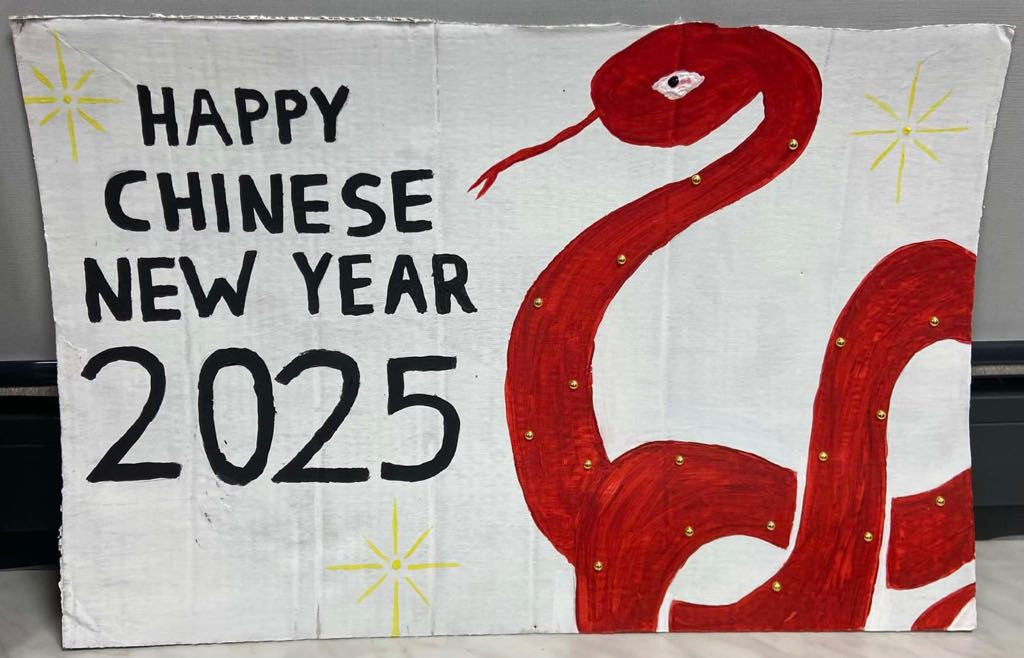 HAPPY
CHINESE
NEW YEAR
2025